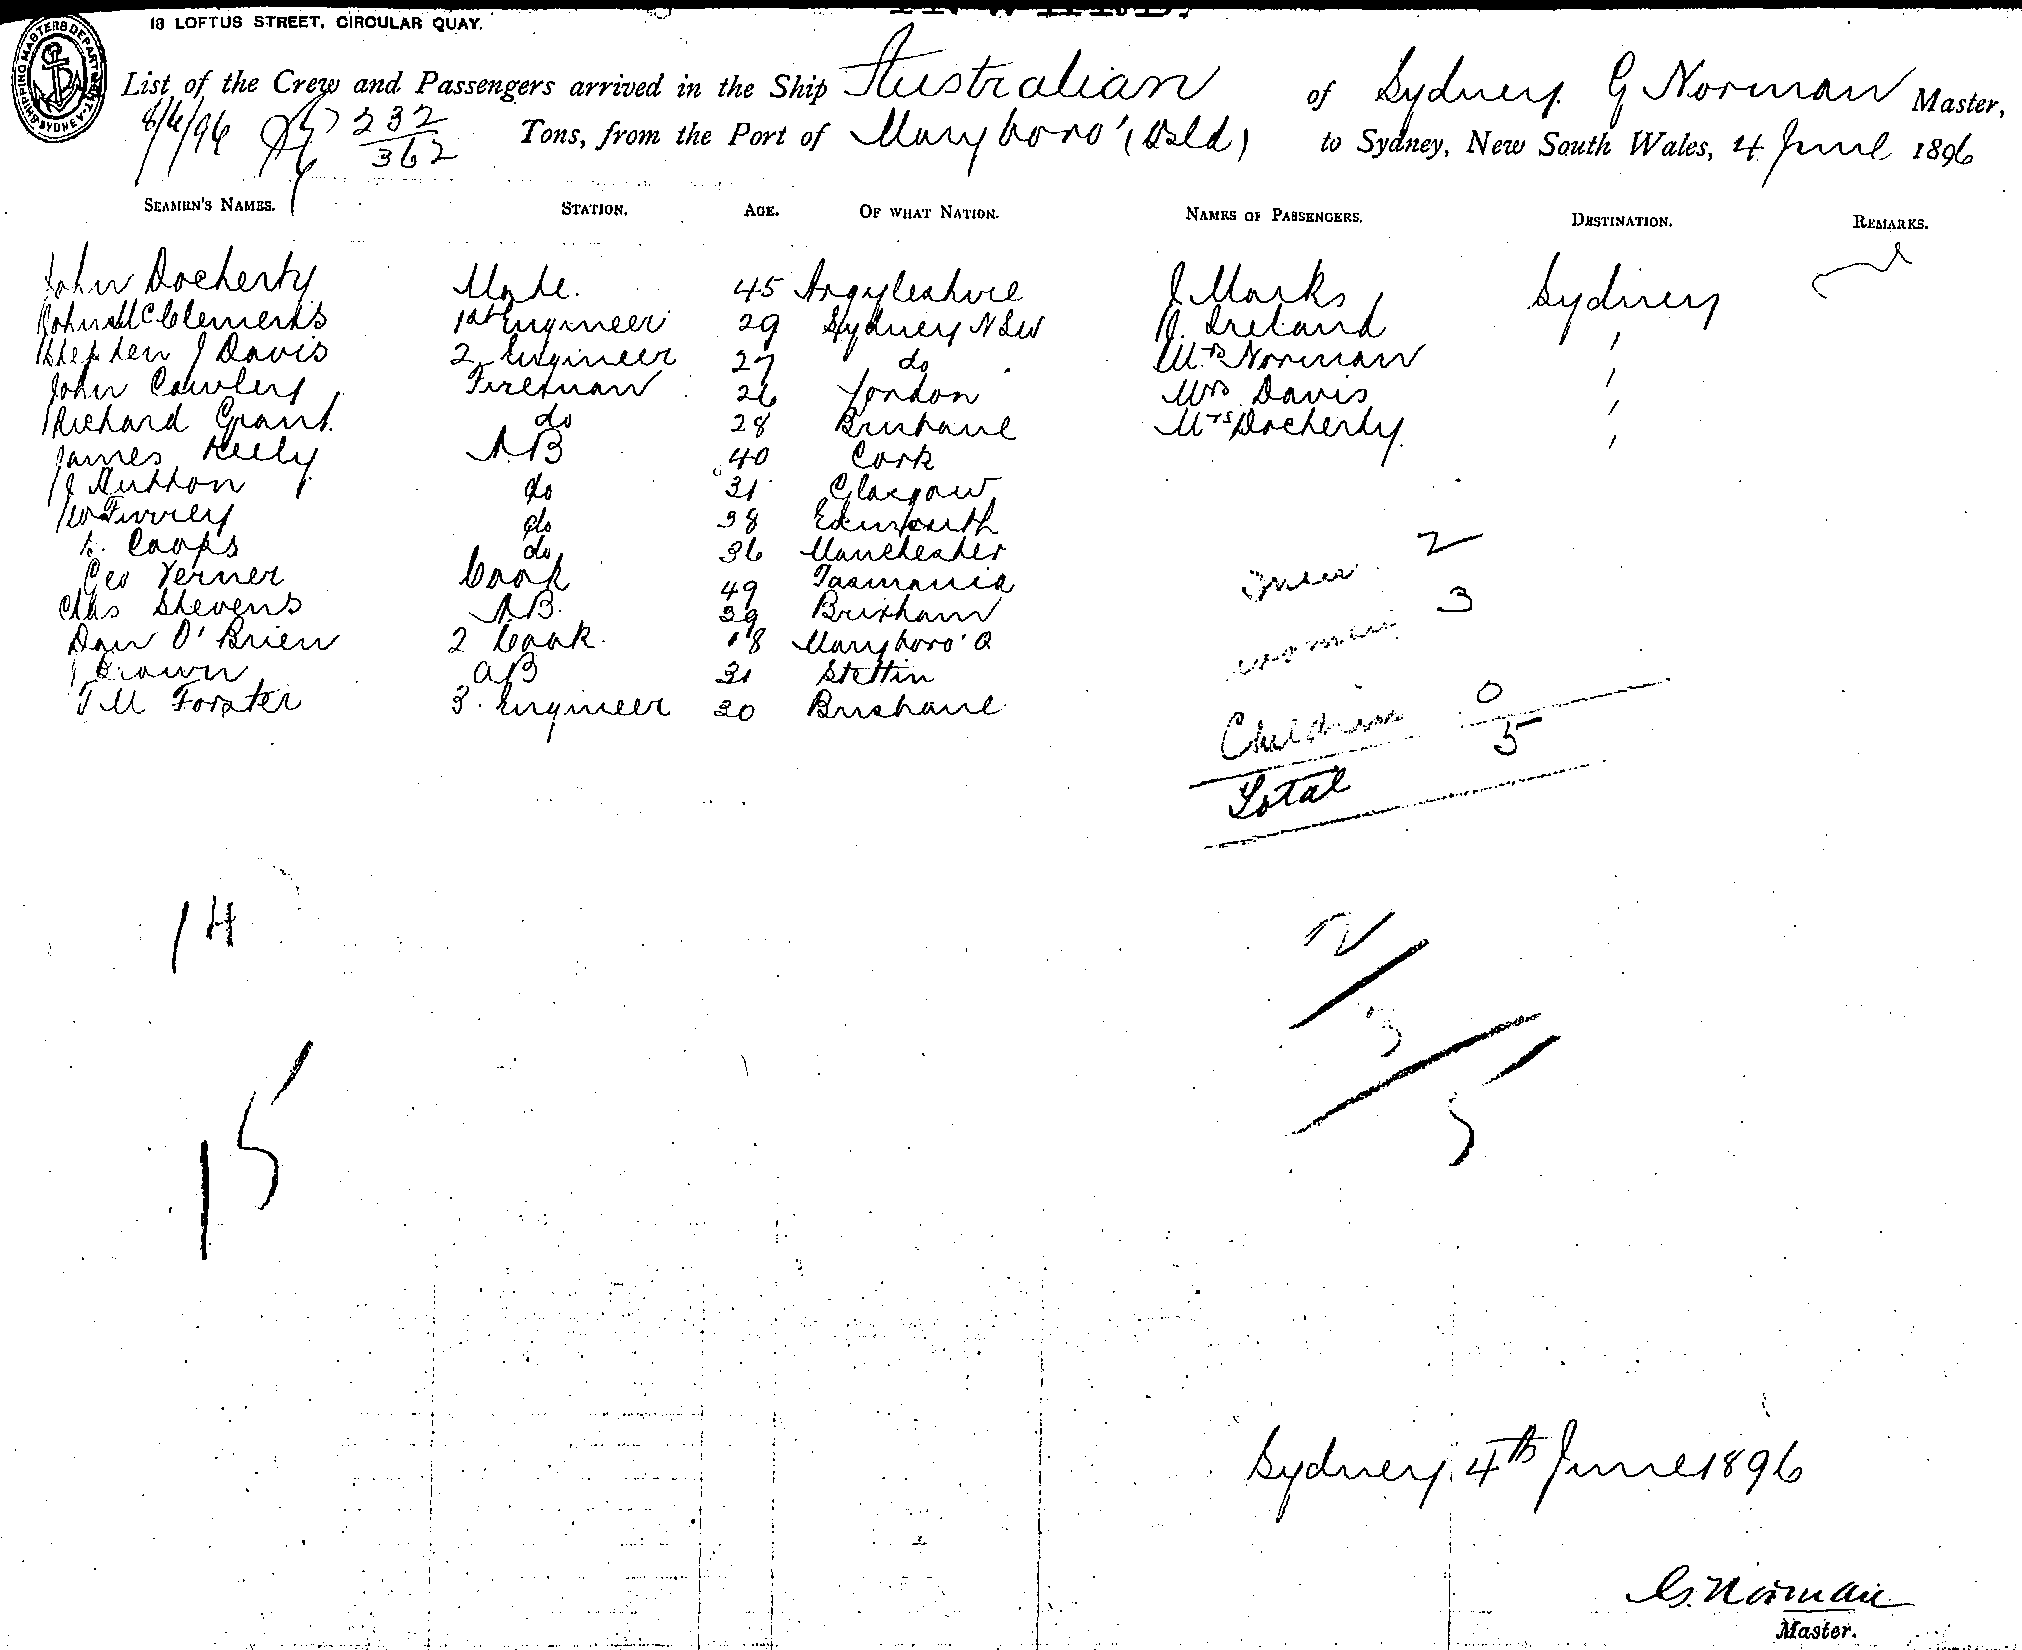 18 LOFTUS STREET, CIRCULAR QUAY.
SHIPPING MASTERS DEPARTMENT SYDNEY
List of the Crew and Passengers arrived in the Ship Australian of Sydney G Norman Master,
8/6/96 232/362 Tons, from the Port of Maryboro' (Qsld) to Sydney, New South Wales, 4 June 1896
SEAMEN'S NAMES. STATION. AGE. OF WHAT NATION. NAMES OF PASSENGERS. DESTINATION. REMARKS.
John Docherty Mate. 45 Argyleshire J Marks Sydney
John McClements 1st Engineer 29 Sydney NSW Ireland "
Stephen J Davis 2 Engineer 27 do Mrs Norman "
John Cawley Fireman 26 London Mrs Davis "
Richard Grant do 28 Brisbane Mrs Docherty "
James Kelly AB 40 Cork
J Hutton do 31 Glasgow
do 38
Coops do 36 Manchester
Geo Verner Cook 49 Tasmania
Chas Stevens AB. 39 Brixham
Dan O'Brien 2 Cook 18 Maryboro' Q
J Brown AB 31 Stettin
T M Forster 3. Engineer 30 Brisbane
men 2
women 3
Children 0
Total 5
14
15
2
3
5
Sydney 4th June 1896
G. Norman
Master.